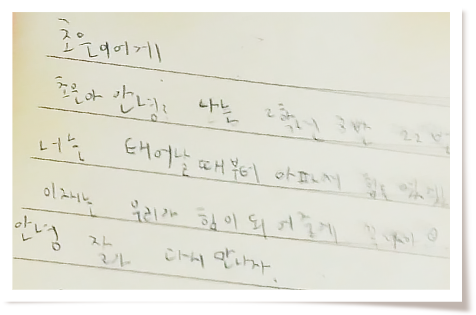 초은이에게
초은아 안녕? 나는 2학년 3반 22번
너는 태어날때부터 아파서 힘도
이제는 우리가 힘이 되어줄게
안녕 잘가 다시 만나자.